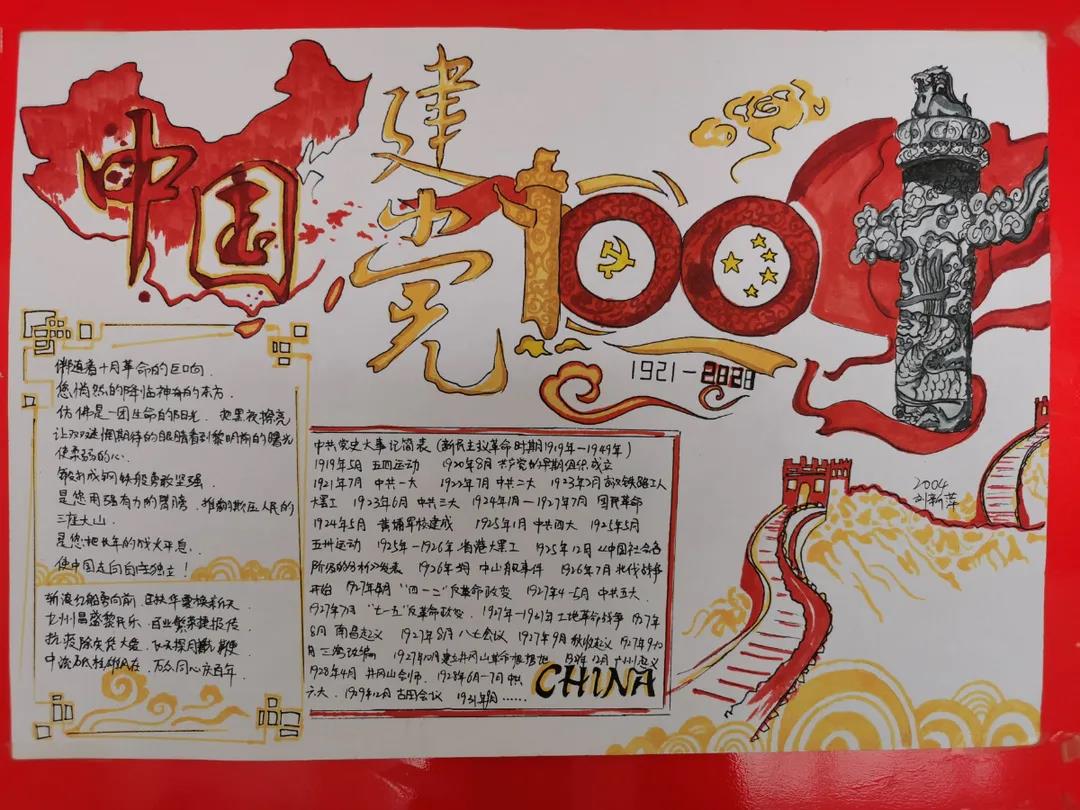 中国
建党
100
1921-2021
伴随着十月革命的巨响.
您悄然的降临神奇的东方.
仿佛是一团生命的阳光. 把黑夜擦亮
让双双迷惘期待的眼睛看到黎明前的曙光
使柔弱的心.
锻打成钢铁般勇敢坚强
是您用强有力的臂膀. 推翻欺压人民的
三座大山.
是您把长年的战火平息..
使中国走向自主独立!
斩浪红船勇向前,
九州昌盛黎民乐. 百业繁荣捷报传
抗疫除灾凭大爱.
万众同心庆百年.
中共党史大事记简表(新民主义革命时期1919年—1949年)
1919年5月 五四运动 1920年8月 共产党的早期组织成立
1921年7月 中共一大 1922年7月 中共二大 1923年2月 京汉铁路工人
大罢工 1923年6月 中共三大 1924年1月—1927年7月 国民革命
1924年5月 黄埔军校建成 1925年1月 中共四大 1925年5月
五卅运动 1925年—1926年 省港大罢工 1925年12月《中国社会各
阶级的分析》发表 1926年3月 中山舰事件 1926年7月 北伐战争
开始 1927年4月 "四一二"反革命政变 1927年4-5月 中共五大.
1927年7月 "七一五"反革命政变. 土地革命战争 1927年
8月 南昌起义 1927年8月 八七会议 1927年9月 秋收起义 1927年9-10
月 三湾改编 1927年10月 建立井冈山革命根据地 1927年12月 广州起义
1928年4月 井冈山会师. 1928年6月-7月 中共
六大. 1929年12月 古田会议 1931年
CHINA
2004